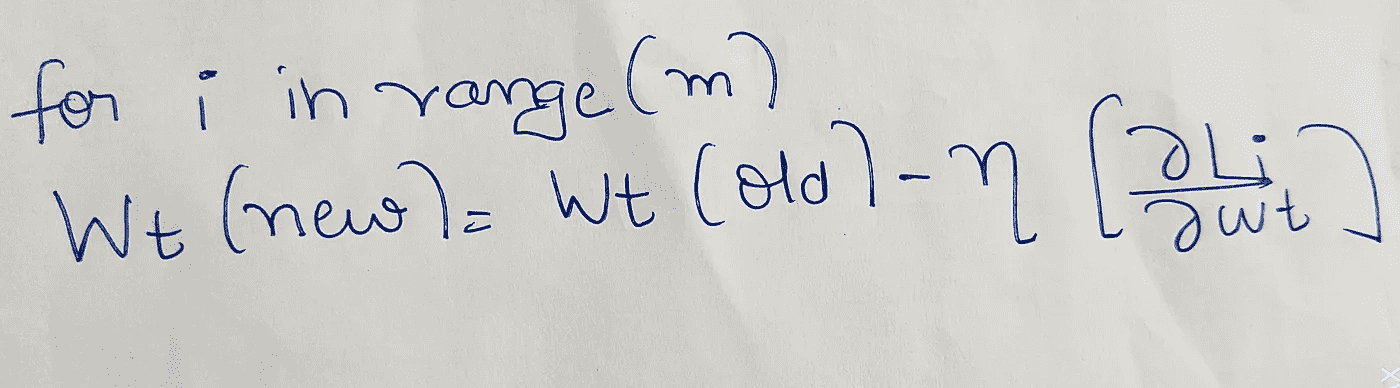 for i in range(m)
Wt (new) = Wt (old) - η [∂Li / ∂wt]